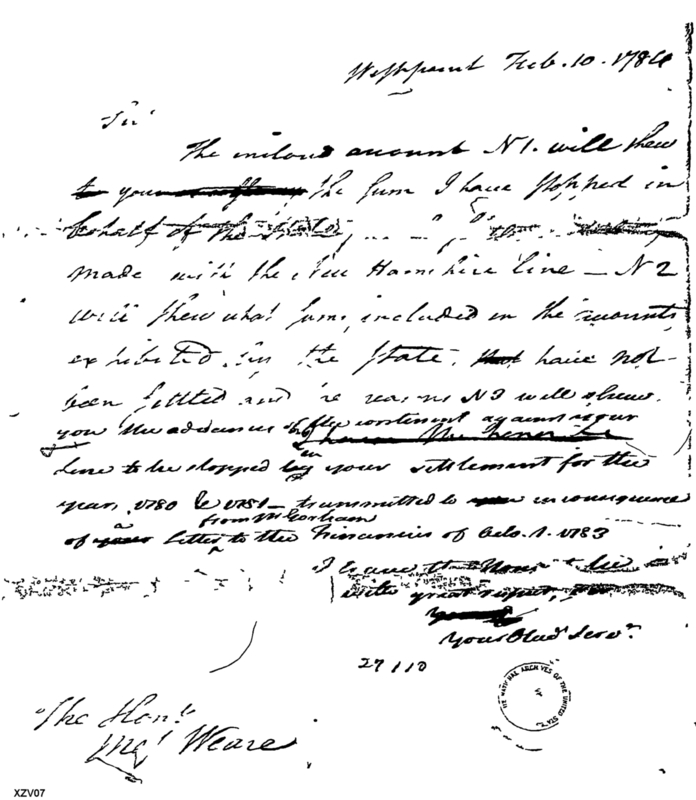 Westpoint Feb. 10. 1784
Sir
The inclosed account N 1. will shew
to you the sum I have stopped in
behalf of the State
made with the New Hampshire line — N 2
will shew what sums, included in the accounts
exhibited by the State, have not
been settled and the reasons N 3 will shew
you the advances of the continent against your
Line to be stopped in your settlement for the
years, 1780 & 1781 — transmitted to in consequence
from Mr Gorham
of a Letter to the Financier of Octo. 1. 1783
I have the Honor to be
with great respect,
Your Obedt Servt.
27110
THE NATIONAL ARCHIVES OF THE UNITED STATES
The Honle
Mr Weare
XZV07